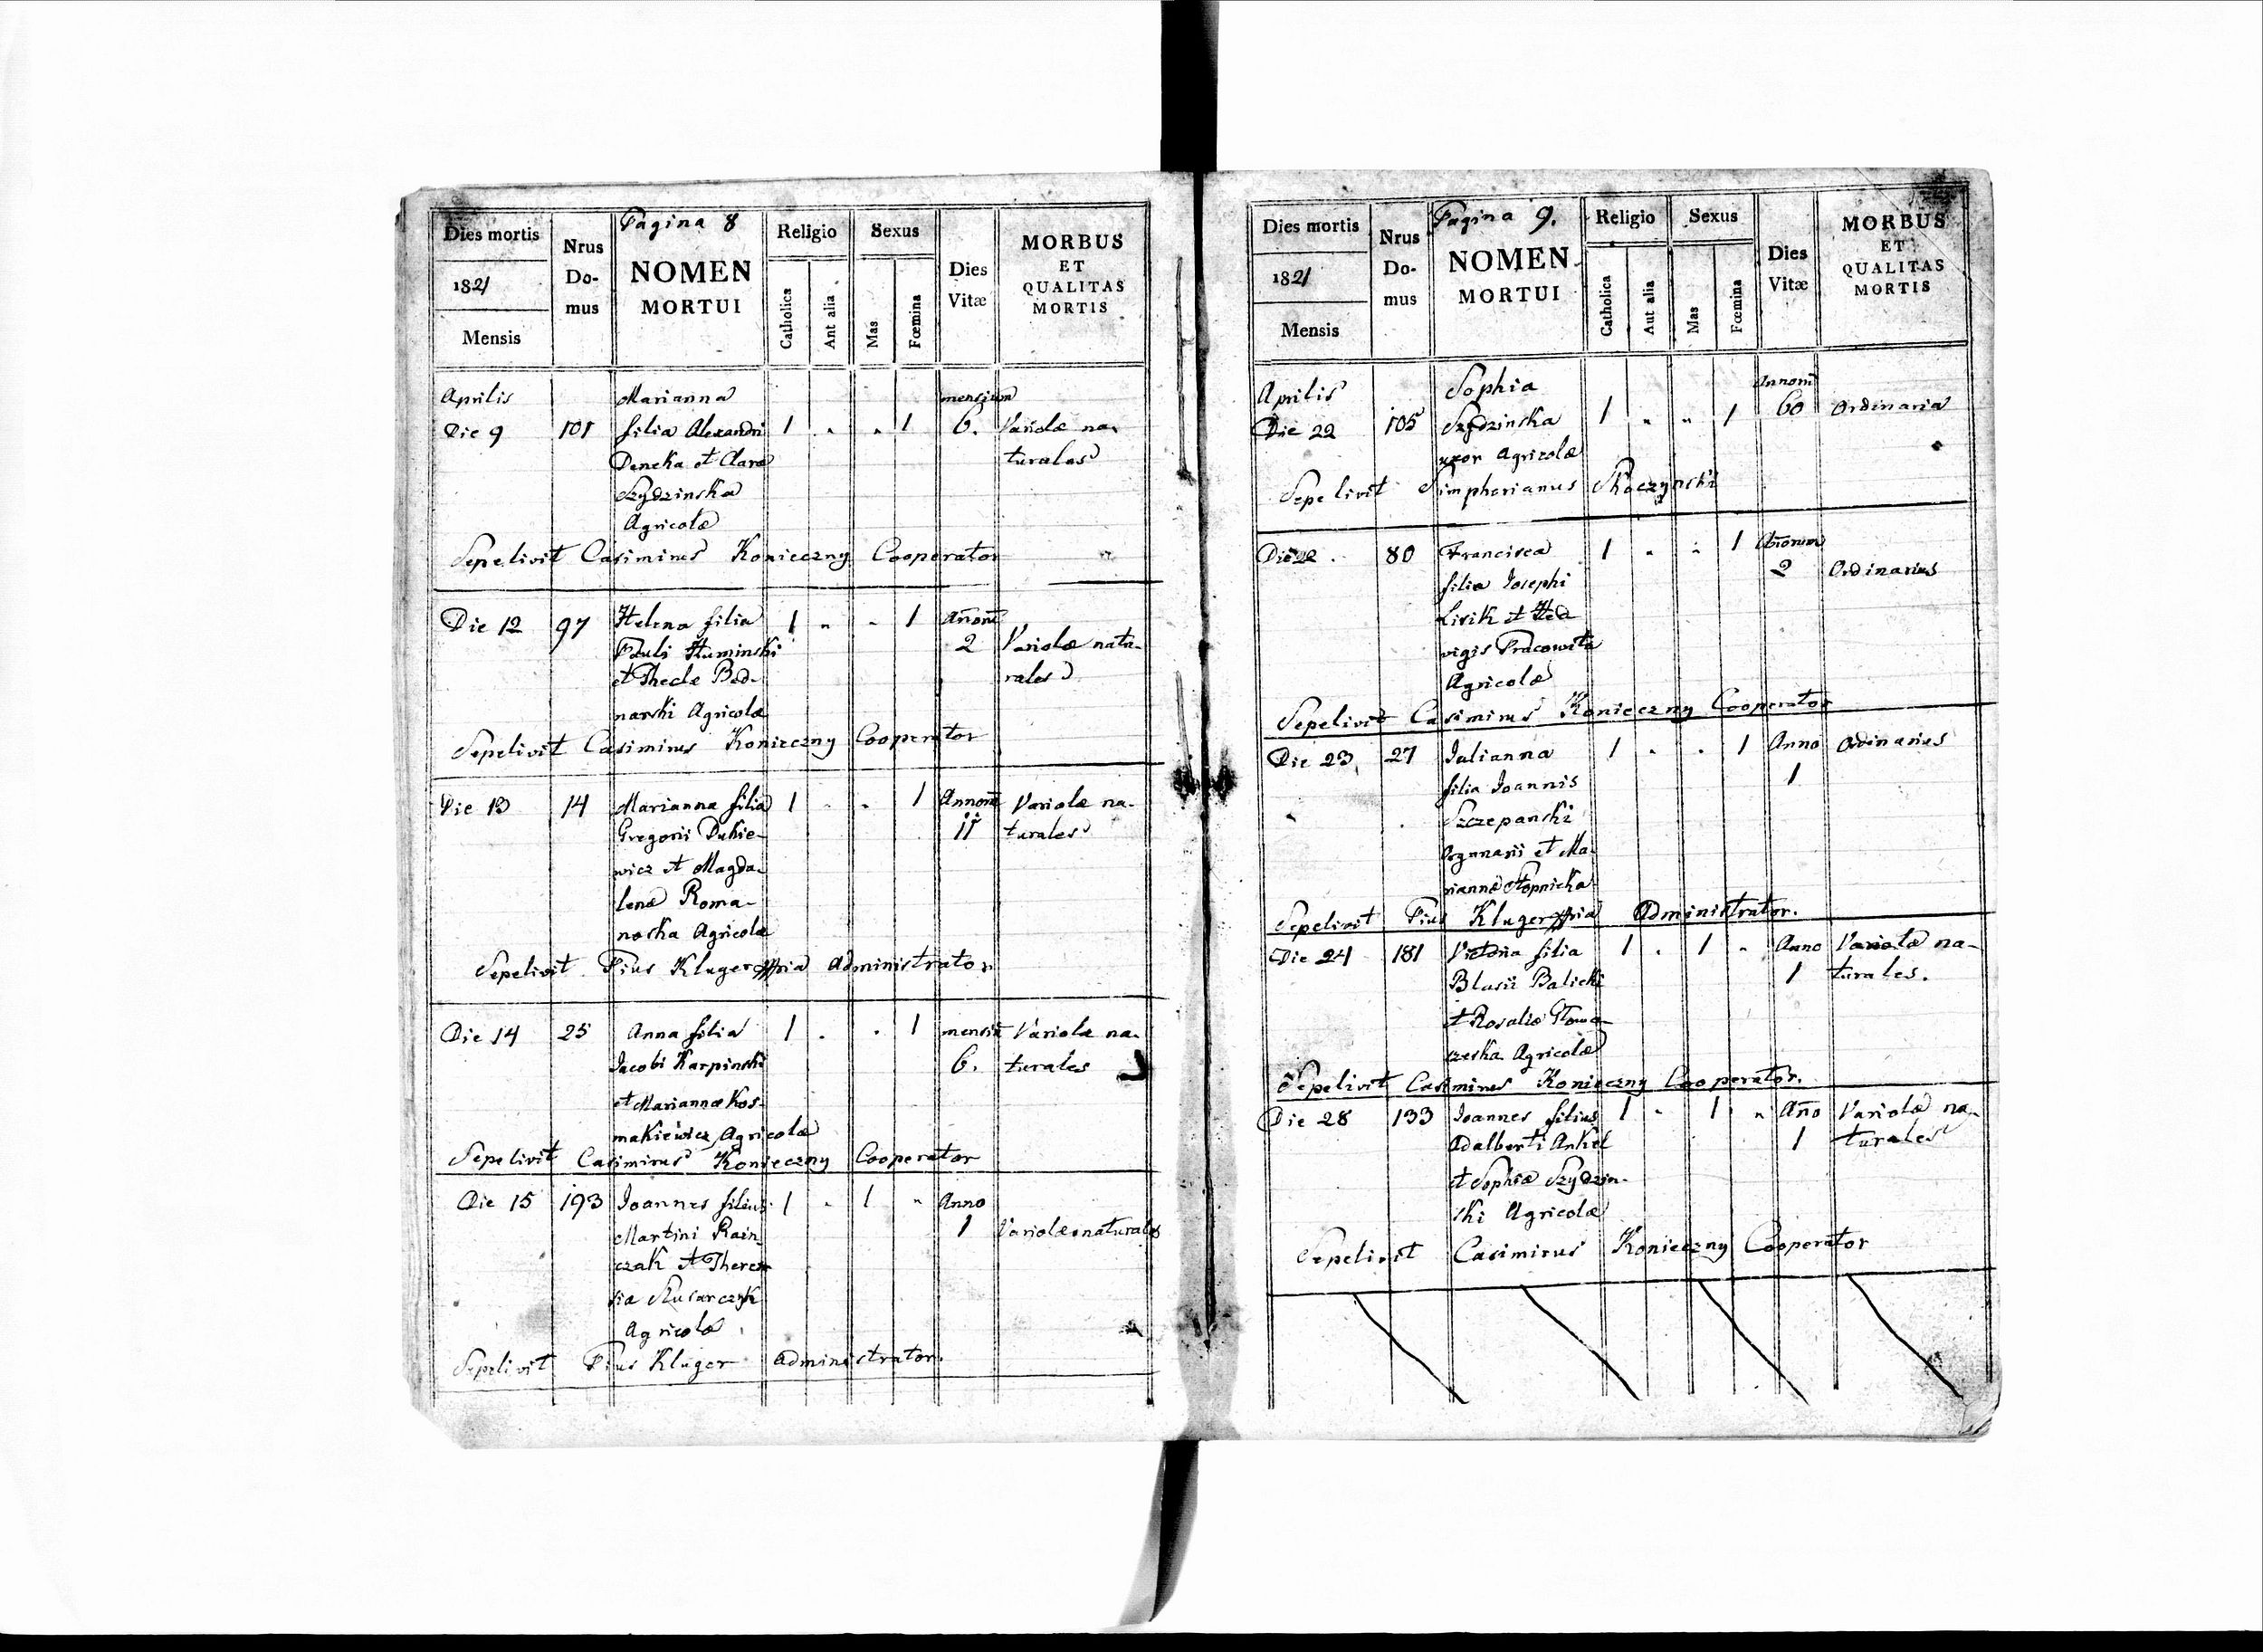 Pagina 8
Dies mortis
1821
Mensis
Nrus Do- mus
NOMEN MORTUI
Religio
Catholica
Aut alia
Sexus
Mas
Fœmina
Dies Vitæ
MORBUS ET QUALITAS MORTIS
Aprilis Marianna mensium
Die 9 101 filia Alexandri 1 " " 1 6. Variolæ na-
Deneka et Claræ turales
Szydzinska
Agricolæ
Sepelivit Casimirus Konieczny Cooperator
Die 12 97 Helena filia 1 " " 1 Añorū
Pauli Huminski 2 Variolæ natu-
et Theclæ Bed- rales
narski Agricolæ
Sepelivit Casimirus Konieczny Cooperator
Die 13 14 Marianna filia 1 " " 1 Annorū Variolæ na-
Gregorii Dukie- 11 turales
wicz et Magda-
lenæ Roma-
noska Agricolæ
Sepelivit Pius Kluger Administrator
Die 14 25 Anna filia 1 " " 1 mensiū Variolæ na-
Jacobi Karpinski 6. turales
et Mariannæ Kos-
makiewicz Agricolæ
Sepelivit Casimirus Konieczny Cooperator
Die 15 193 Joannes filius 1 " 1 " Anno
Martini Rain- 1 Variolæ naturales
czak et There-
sia Slusarczyk
Agricolæ
Sepelivit Pius Kluger Administrator.
Pagina 9.
Dies mortis
1821
Mensis
Nrus Do- mus
NOMEN MORTUI
Religio
Catholica
Aut alia
Sexus
Mas
Fœmina
Dies Vitæ
MORBUS ET QUALITAS MORTIS
Aprilis Sophia Annorū
Die 22 105 Szydzinska 1 " " 1 60 Ordinaria
uxor Agricolæ
Sepelivit Simphorianus Skoczynski
Die 22 80 Francisca 1 " " 1 Añorum
filia Josephi 2 Ordinarius
Lisik et Hed
vigis Pracowita
Agricolæ
Sepelivit Casimirus Konieczny Cooperator
Die 23 27 Julianna 1 " " 1 Anno Ordinarius
filia Joannis 1
Szczepanski
et Ma-
riannæ Stopnicka
Sepelivit Pius Kluger Administrator.
Die 24 181 Victoria filia 1 " 1 " Anno Variolæ na-
Blasii Balicki 1 turales.
et Rosaliæ
Agricolæ
Sepelivit Casimirus Konieczny Cooperator.
Die 28 133 Joannes filius 1 " 1 " Año Variolæ na-
Adalberti Ankel 1 turales
et Sophiæ Szydzin-
ski Agricolæ
Sepelivit Casimirus Konieczny Cooperator